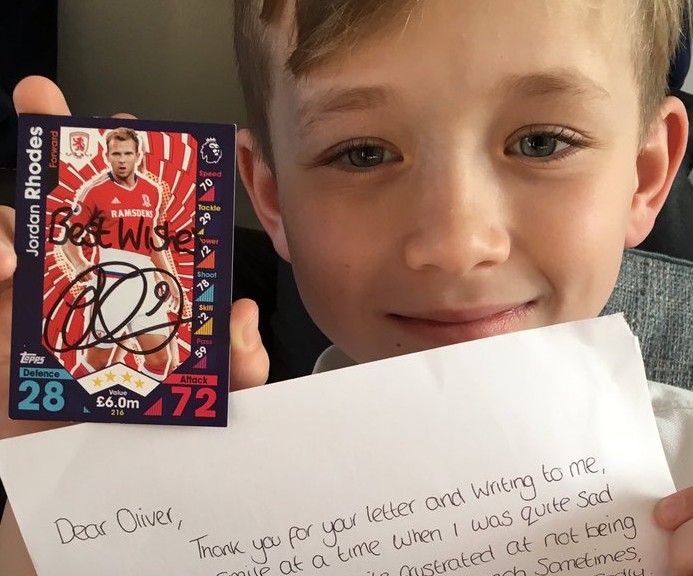 Jordan Rhodes
Forward
Speed
70
Tackle
29
Power
72
Shoot
78
Skill
Pass
59
RAMSDENS
Best Wishes
Topps
Defence
28
Value
£6.0m
216
Attack
72
Dear Oliver,
Thank you for your letter and writing to me,
smile at a time when I was quite sad
frustrated at not being
Sometimes,